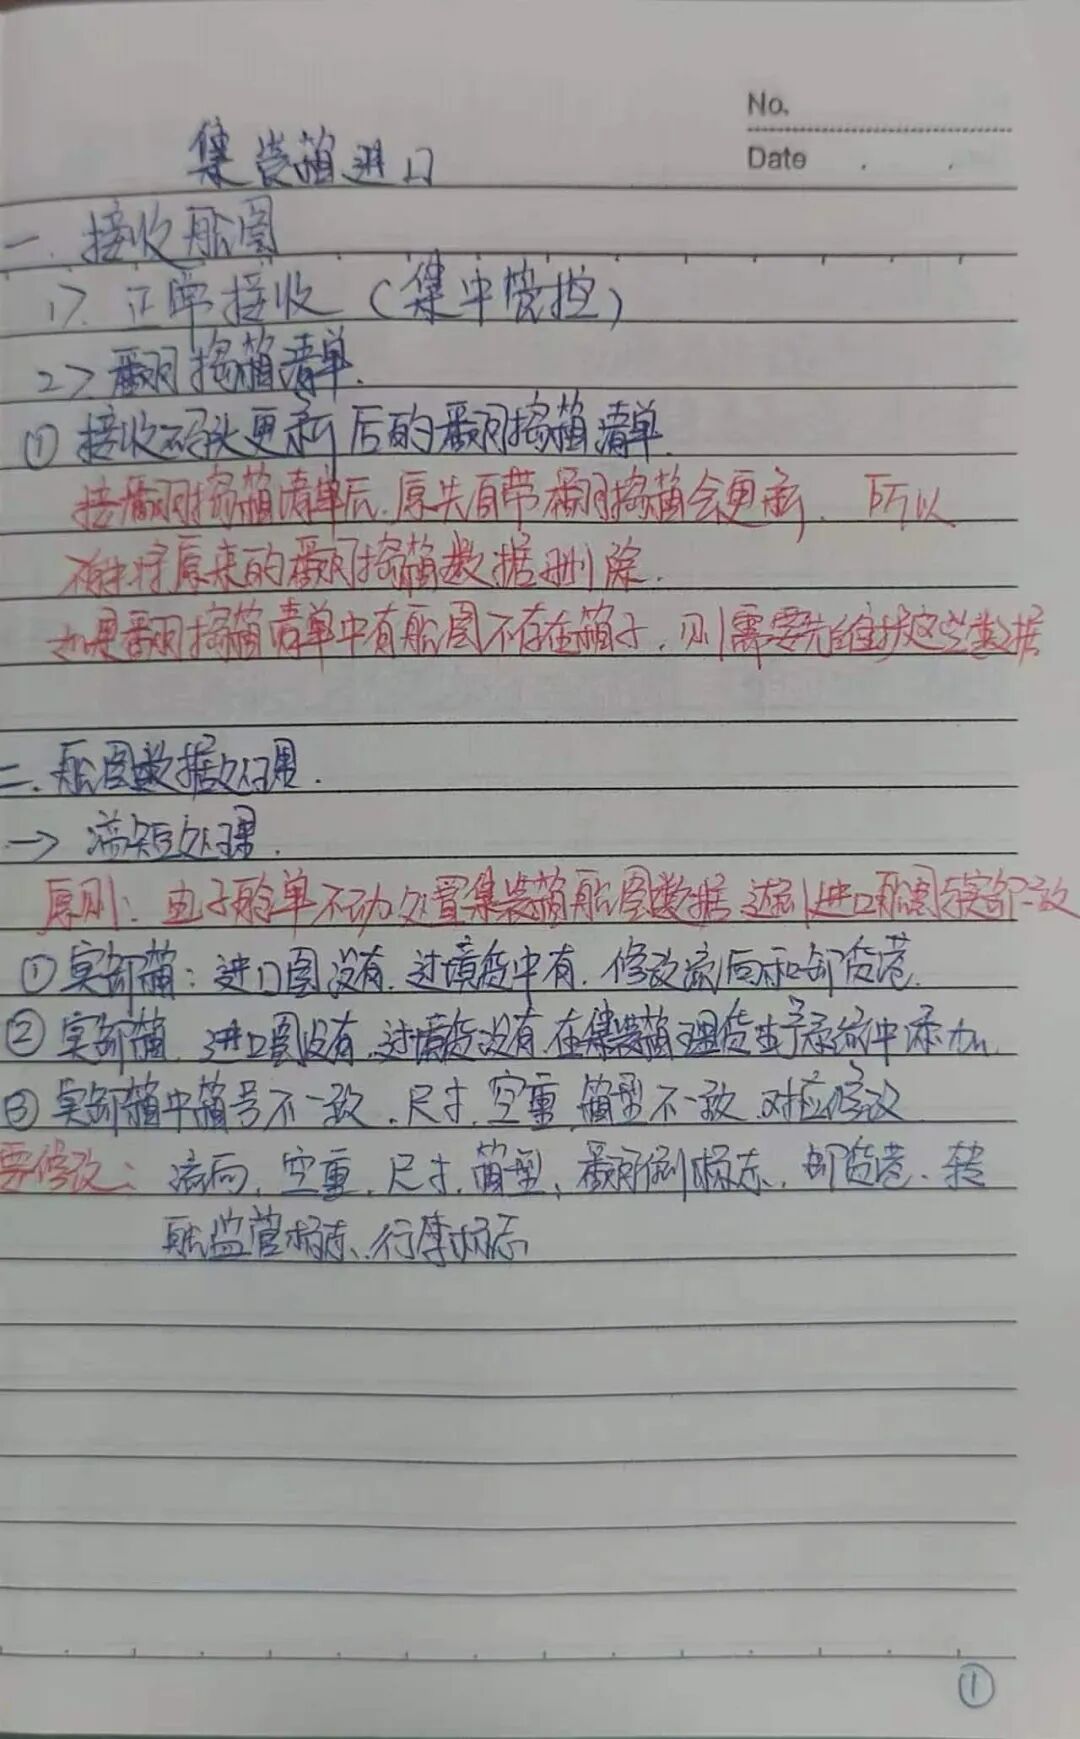 No.
Date
集装箱进口
一. 接收船图
1>. 正常接收（集中管控）
2> 翻捣箱清单.
① 接收码头更新后的翻捣箱清单.
接翻捣箱清单后.原先自带翻捣箱会更新. 所以
将原来的翻捣箱数据删除.
如果翻捣箱清单中有船图不存在箱子，则需要先维护这些数据
二. 船图数据处理.
→ 溢短处理.
原则：电子舱单不动处置集装箱船图数据 达到进口船图与实卸一致
① 实卸箱：进口图没有.过境货中有.修改流向和卸货港.
② 实卸箱. 进口图没有.过境货没有.在集装箱理货电子系统中添加.
③ 实卸箱中箱号不一致.尺寸.空重.箱型不一致.对应修改
要修改： 流向.空重.尺寸.箱型、翻倒标志.卸货港.转
船监管标志、行库标志
①